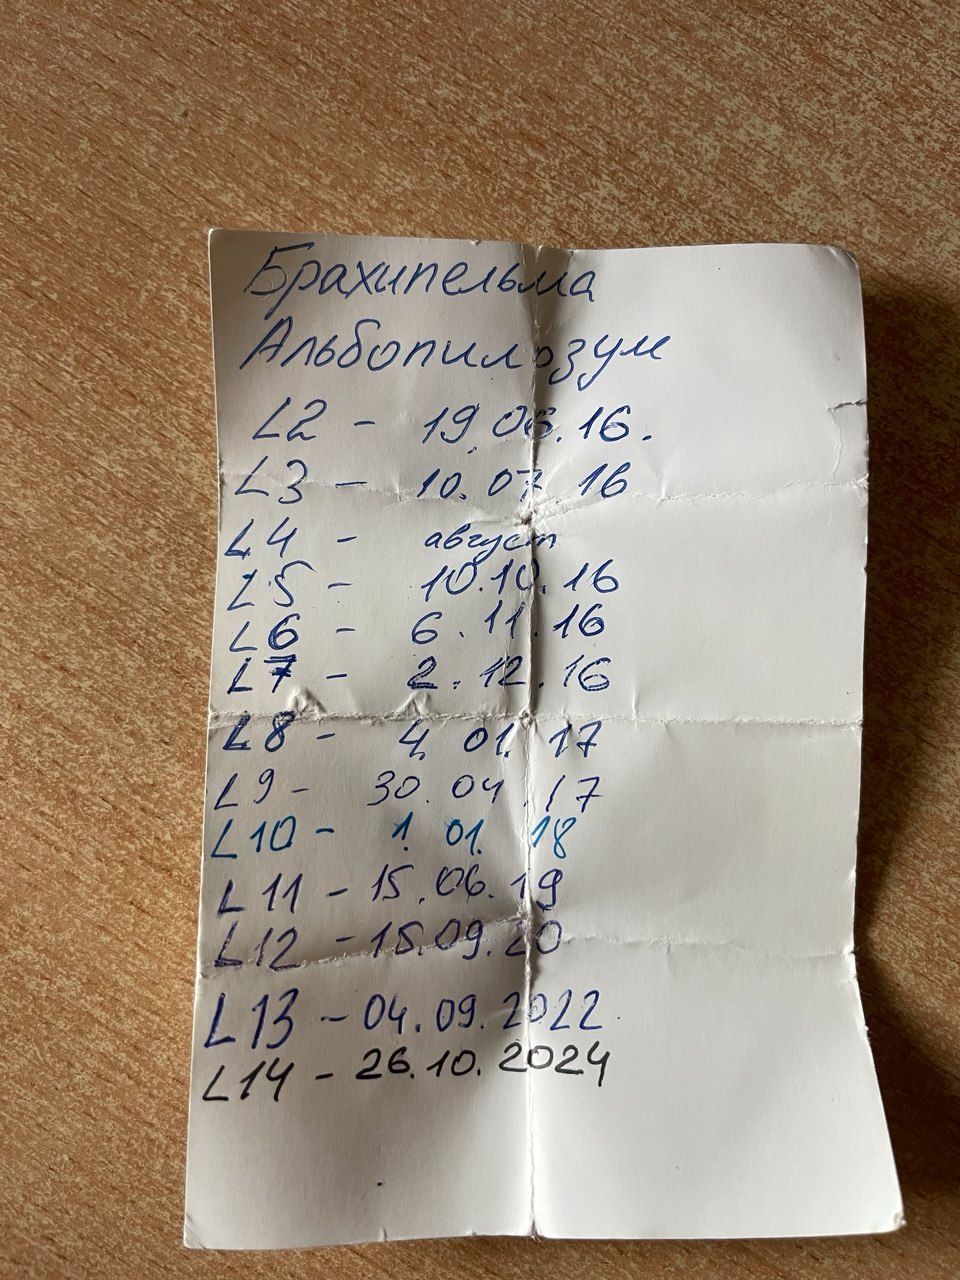 Брахипельма
Альбопилозум
L2 - 19.06.16.
L3 - 10.07.16
L4 - август
L5 - 10.10.16
L6 - 6.11.16
L7 - 2.12.16
L8 - 4.01.17
L9 - 30.04.17
L10 - 1.01.18
L11 - 15.06.19
L12 - 15.09.20
L13 - 04.09.2022
L14 - 26.10.2024